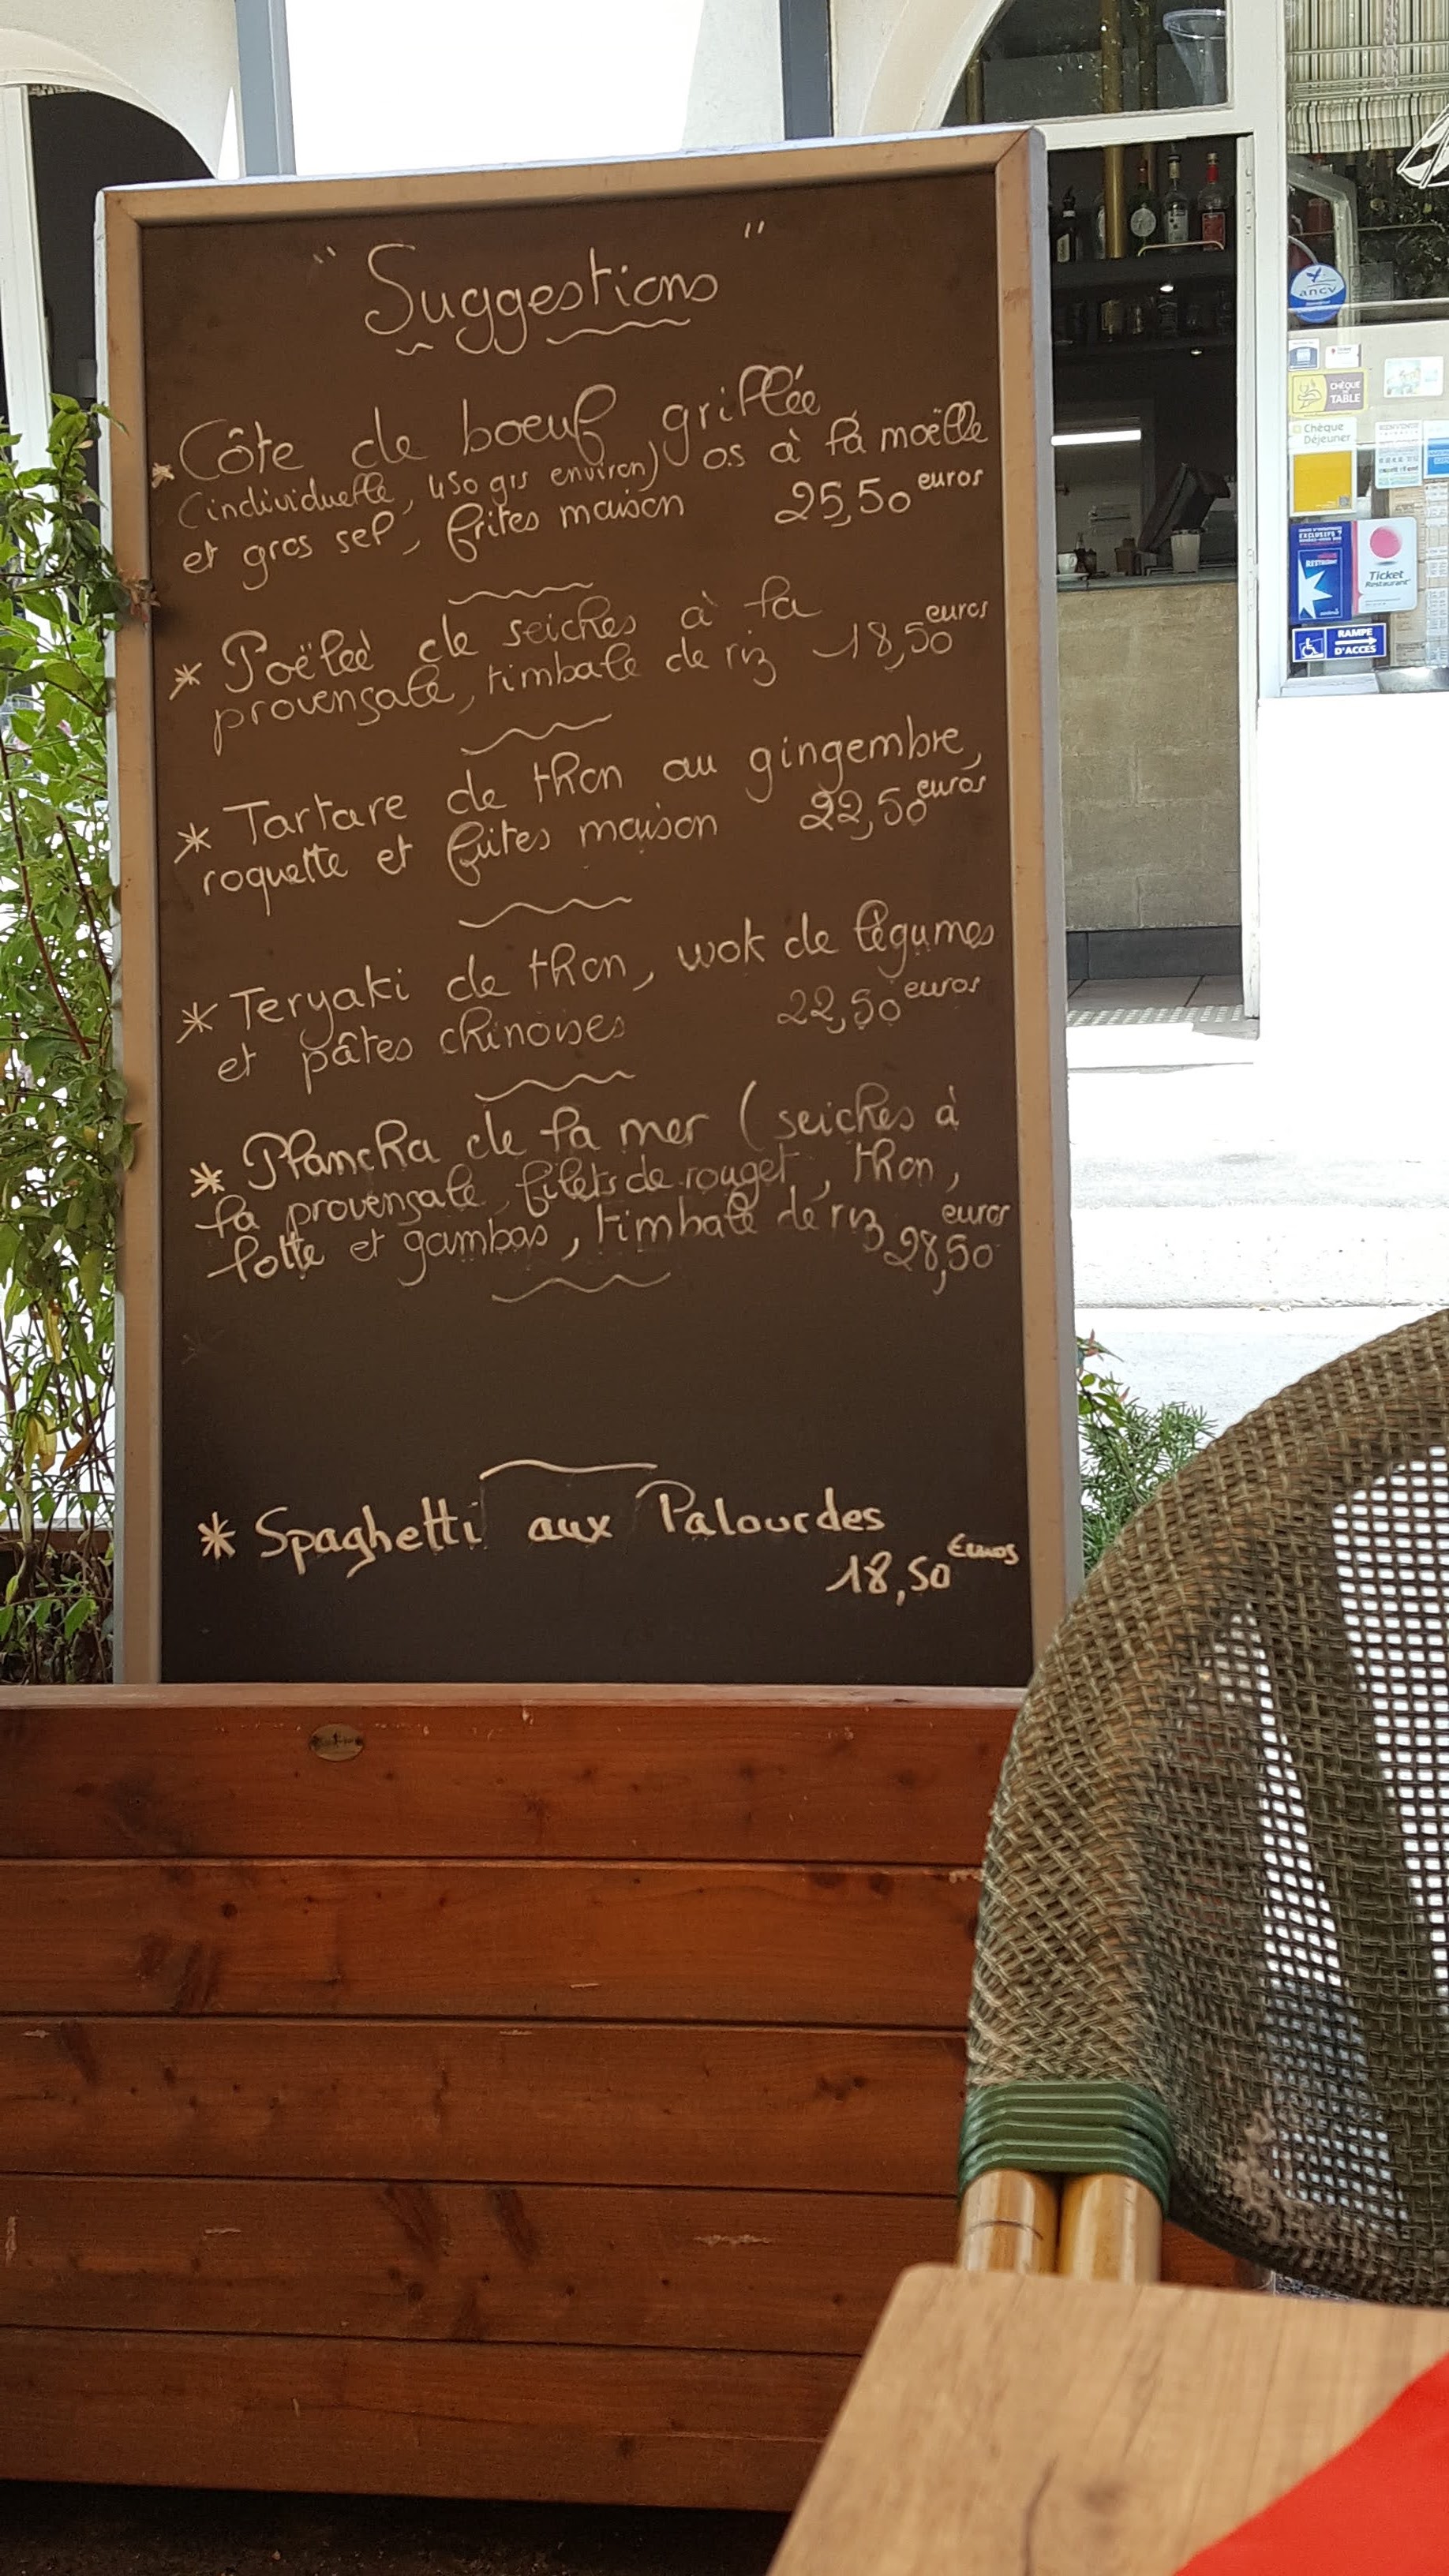 " Suggestions "
* Côte de boeuf grillée
(individuelle, 450 grs environ) os à la moëlle
et gros sel, frites maison 25,50 euros
* Poëleé de seiches à la
provençale, timbale de riz 18,50 euros
* Tartare de thon au gingembre,
roquette et frites maison 22,50 euros
* Teryaki de thon, wok de légumes
et pâtes chinoises 22,50 euros
* Plancha de la mer (seiches à
la provençale, filets de rouget, thon,
lotte et gambas, timbale de riz 28,50 euros
* Spaghetti aux Palourdes
18,50 Euros
ancv
CHÈQUE
DE TABLE
Chèque
Déjeuner
Ticket
Restaurant
RAMPE
D'ACCÈS